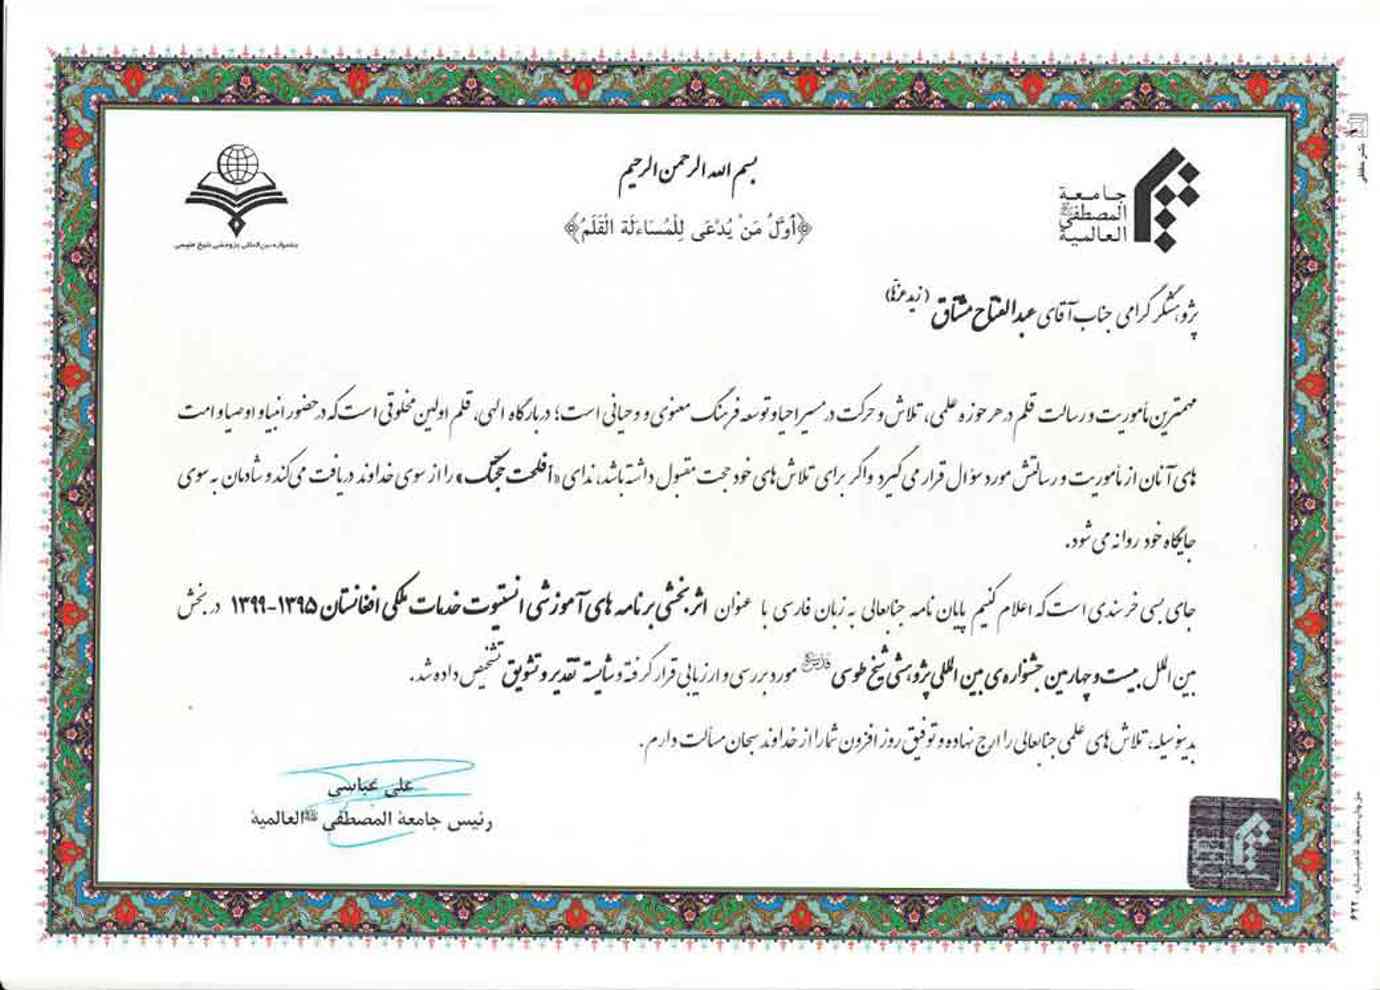 بسم الله الرحمن الرحیم
﴿أَوَّلُ مَنْ يُدْعَى لِلْمُسَاءَلَة الْقَلَمُ﴾
جامعة
المصطفی ﷺ
العالمیة
جشنواره بین‌المللی پژوهشی شیخ طوسی
پژوهشگر گرامی جناب آقای عبدالفتاح مشتاق (زید عزّه)
مهمترین مأموریت و رسالت قلم در هر حوزه علمی، تلاش و حرکت در مسیر احیا و توسعه فرهنگ معنوی و وحیانی است؛ در بارگاه الهی، قلم اولین مخلوقی است که در حضور انبیا و اوصیا و امت
های آنان از مأموریت و رسالتش مورد سؤال قرار می گیرد و اگر برای تلاش های خود حجت مقبول داشته باشد، ندای «أفلحت حجتک» را از سوی خداوند دریافت می کند و شادمان به سوی
جایگاه خود روانه می شود.
جای بسی خرسندی است که اعلام کنیم پایان نامه جنابعالی به زبان فارسی با عنوان اثربخشی برنامه های آموزشی انستیتوت خدمات ملکی افغانستان ۱۳۹۵-۱۳۹۹ در بخش
بین الملل بیست و چهارمین جشنواره‌ی بین المللی پژوهشی شیخ طوسی مورد بررسی و ارزیابی قرار گرفته و شایسته تقدیر و تشویق تشخیص داده شد.
بدینوسیله، تلاش های علمی جنابعالی را ارج نهاده و توفیق روز افزون شما را از خداوند سبحان مسألت دارم.
علی عباسی
رئیس جامعة المصطفی ﷺ العالمیة